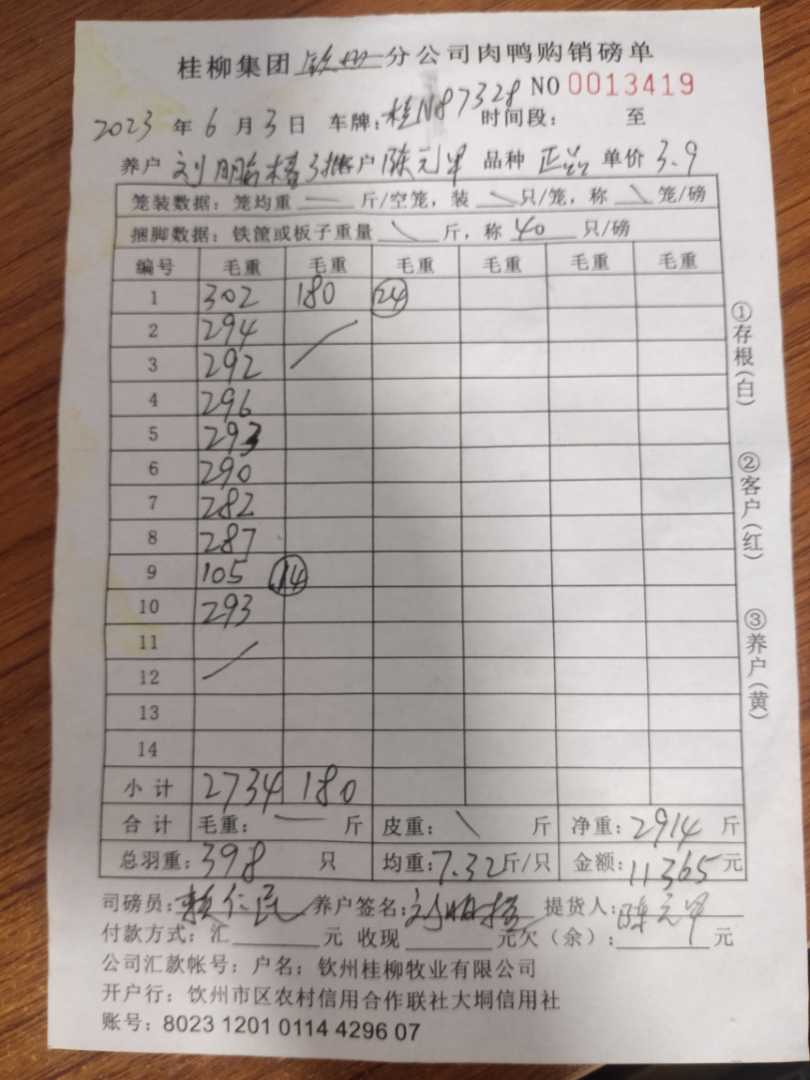 桂柳集团 钦州 分公司肉鸭购销磅单
NO 0013419
2023 年 6 月 3 日 车牌: 桂N87328 时间段: 至
养户 刘 客户 陈元 品种 正品 单价 3.9
笼装数据: 笼均重 — 斤/空笼, 装 \ 只/笼, 称 \ 笼/磅
捆脚数据: 铁筐或板子重量 \ 斤, 称 40 只/磅
编号 毛重 毛重 毛重 毛重 毛重 毛重
1 302 180 24
2 294
3 292
4 296
5 293
6 290
7 282
8 287
9 105 14
10 293
11
12
13
14
小计 2734 180
合计 毛重: — 斤 皮重: \ 斤 净重: 2914 斤
总羽重: 398 只 均重: 7.32 斤/只 金额: 11365 元
司磅员: 赖仁民 养户签名: 刘 提货人: 陈元
付款方式: 汇 元 收现 元欠(余): 元
公司汇款帐号: 户名: 钦州桂柳牧业有限公司
开户行: 钦州市区农村信用合作联社大垌信用社
账号: 8023 1201 0114 4296 07
①存根(白)
②客户(红)
③养户(黄)